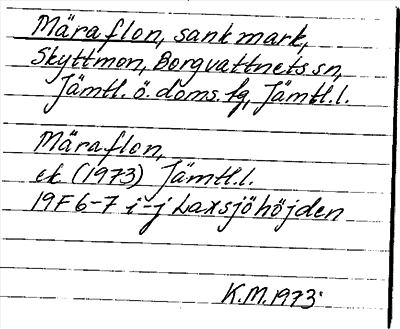 Märaflon, sank mark,
Skyttmon, Borgvattnets sn,
Jämtl. ö. doms. fg, Jämtl.l.
Märaflon,
ek (1973) Jämtl.l.
19F 6-7 i-j Laxsjöhöjden
K.M. 1973.